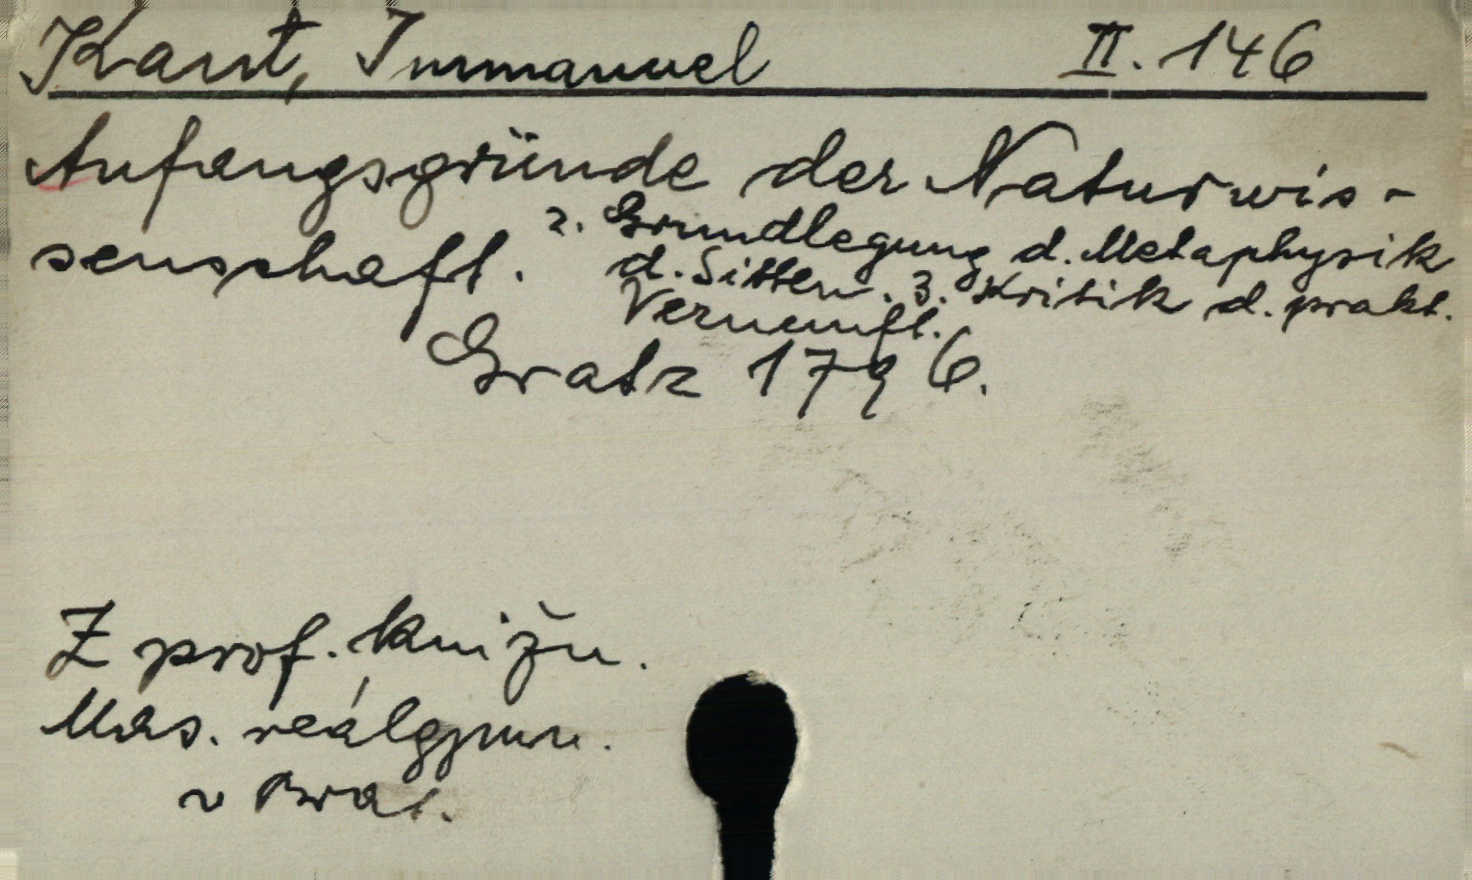 Kant, Immanuel II. 146
Anfangsgründe der Naturwis-
senschaft. 2. Grundlegung d. Metaphysik
d. Sitten. 3. Kritik d. prakt.
Vernunft.
Gratz 1796.
Z prof. knižn.
Mas. reálgymn.
v Brat.